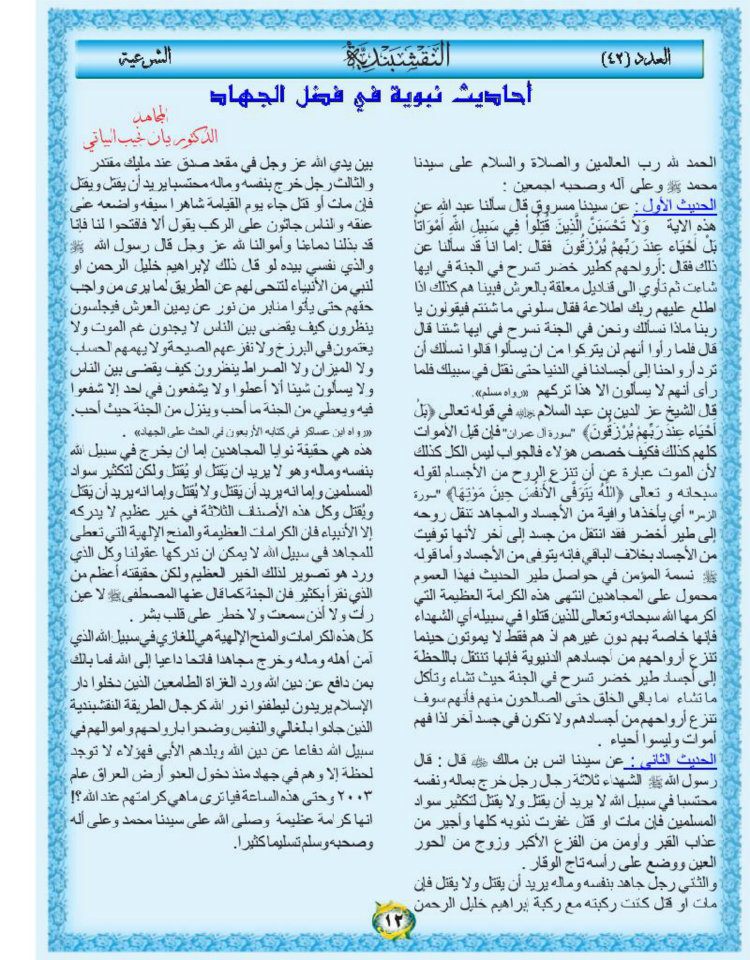 العدد (٤٢)
النقشبندية
الشرعية
أحاديث نبوية في فضل الجهاد
المجاهد
الدكتور بيان نجيب البياتي
الحمد لله رب العالمين والصلاة والسلام على سيدنا
محمد ﷺ وعلى آله وصحبه اجمعين :
الحديث الأول : عن سيدنا مسروق قال سألنا عبد الله عن
هذه الاية وَلَا تَحْسَبَنَّ الَّذِينَ قُتِلُوا فِي سَبِيلِ اللَّهِ أَمْوَاتًا
بَلْ أَحْيَاء عِندَ رَبِّهِمْ يُرْزَقُونَ فقال :اما انا قد سألنا عن
ذلك فقال :أرواحهم كطير خضر تسرح في الجنة في ايها
شاءت ثم تأوي الى قناديل معلقة بالعرش فبينا هم كذلك اذا
اطلع عليهم ربك اطلاعة فقال سلوني ما شئتم فيقولون يا
ربنا ماذا نسألك ونحن في الجنة نسرح في ايها شئنا قال
قال فلما رأوا أنهم لن يتركوا من ان يسألوا قالوا نسألك أن
ترد أرواحنا إلى أجسادنا في الدنيا حتى نقتل في سبيلك فلما
رأى أنهم لا يسألون الا هذا تركهم «رواه مسلم».
قال الشيخ عز الدين بن عبد السلام في قوله تعالى ﴿بَلْ
أَحْيَاء عِندَ رَبِّهِمْ يُرْزَقُونَ﴾ "سورة ال عمران" فإن قيل الأموات
كلهم كذلك فكيف خصص هؤلاء فالجواب ليس الكل كذلك
لأن الموت عبارة عن أن تنزع الروح من الأجسام لقوله
سبحانه و تعالى ﴿اللَّهُ يَتَوَفَّى الْأَنفُسَ حِينَ مَوْتِهَا﴾ "سورة
الزمر" أي يأخذها وافية من الأجساد والمجاهد تنقل روحه
إلى طير أخضر فقد انتقل من جسد إلى آخر لأنها توفيت
من الأجساد بخلاف الباقي فإنه يتوفى من الأجساد وأما قوله
ﷺ نسمة المؤمن في حواصل طير الحديث فهذا العموم
محمول على المجاهدين انتهى هذه الكرامة العظيمة التي
أكرمها الله سبحانه وتعالى للذين قتلوا في سبيله أي الشهداء
فإنها خاصة بهم دون غيرهم اذ هم فقط لا يموتون حينما
تنزع أرواحهم من أجسادهم الدنيوية فإنها تنتقل باللحظة
إلى أجساد طير خضر تسرح في الجنة حيث تشاء وتأكل
ما تشاء اما باقي الخلق حتى الصالحون منهم فأنهم سوف
تنزع أرواحهم من أجسادهم ولا تكون في جسد آخر لذا فهم
أموات وليسوا أحياء .
الحديث الثاني : عن سيدنا انس بن مالك قال : قال
رسول الله ﷺ الشهداء ثلاثة رجال رجل خرج بماله ونفسه
محتسبا في سبيل الله لا يريد أن يقتل ولا يقتل لتكثير سواد
المسلمين فإن مات او قتل غفرت ذنوبه كلها وأجير من
عذاب القبر وأومن من الفزع الأكبر وزوج من الحور
العين ووضع على رأسه تاج الوقار .
والثاني رجل جاهد بنفسه وماله يريد أن يقتل ولا يقتل فإن
مات او قتل كانت ركبته مع ركبة إبراهيم خليل الرحمن
بين يدي الله عز وجل في مقعد صدق عند مليك مقتدر
والثالث رجل خرج بنفسه وماله محتسبا يريد أن يقتل ويقتل
فإن مات أو قتل جاء يوم القيامة شاهرا سيفه واضعه على
عنقه والناس جاثون على الركب يقول ألا فأفتحوا لنا فإنا
قد بذلنا دماءنا وأموالنا لله عز وجل قال رسول الله ﷺ
والذي نفسي بيده لو قال ذلك لإبراهيم خليل الرحمن او
لنبي من الأنبياء لتنحى لهم عن الطريق لما يرى من واجب
حقهم حتى يأتوا منابر من نور عن يمين العرش فيجلسون
ينظرون كيف يقضى بين الناس لا يجدون غم الموت ولا
يغتمون في البرزخ ولا تفزعهم الصيحة ولا يهمهم الحساب
ولا الميزان ولا الصراط ينظرون كيف يقضى بين الناس
ولا يسألون شيئا ألا أعطوا ولا يشفعون في احد إلا شفعوا
فيه ويعطي من الجنة ما أحب وينزل من الجنة حيث أحب.
«رواه ابن عساكر في كتابه الأربعون في الحث على الجهاد» .
هذه هي حقيقة نوايا المجاهدين إما ان يخرج في سبيل الله
بنفسه وماله وهو لا يريد ان يَقتل او يُقتل ولكن لتكثير سواد
المسلمين وإما انه يريد أن يَقتل ولا يُقتل وإما انه يريد أن يَقتل
ويُقتل وكل هذه الأصناف الثلاثة في خير عظيم لا يدركه
إلا الأنبياء فان الكرامات العظيمة والمنح الإلهية التي تعطى
للمجاهد في سبيل الله لا يمكن ان تدركها عقولنا وكل الذي
ورد هو تصوير لذلك الخير العظيم ولكن حقيقته أعظم من
الذي نقرأ بكثير فان الجنة كما قال عنها المصطفى ﷺ لا عين
رأت ولا أذن سمعت ولا خطر على قلب بشر .
كل هذه الكرامات والمنح الإلهية هي للغازي في سبيل الله الذي
آمن أهله وماله وخرج مجاهدا فاتحا داعيا إلى الله فما بالك
بمن دافع عن دين الله ورد الغزاة الطامعين الذين دخلوا دار
الإسلام يريدون ليطفئوا نور الله كرجال الطريقة النقشبندية
الذين جادوا بلغالي والنفيس وضحوا بارواحهم واموالهم في
سبيل الله دفاعا عن دين الله وبلدهم الأبي فهؤلاء لا توجد
لحظة إلا وهم في جهاد منذ دخول العدو أرض العراق عام
٢٠٠٣ وحتى هذه الساعة فيا ترى ماهي كرامتهم عند الله؟!
انها كرامة عظيمة وصلى الله على سيدنا محمد وعلى آله
وصحبه وسلم تسليما كثيرا.
١٢